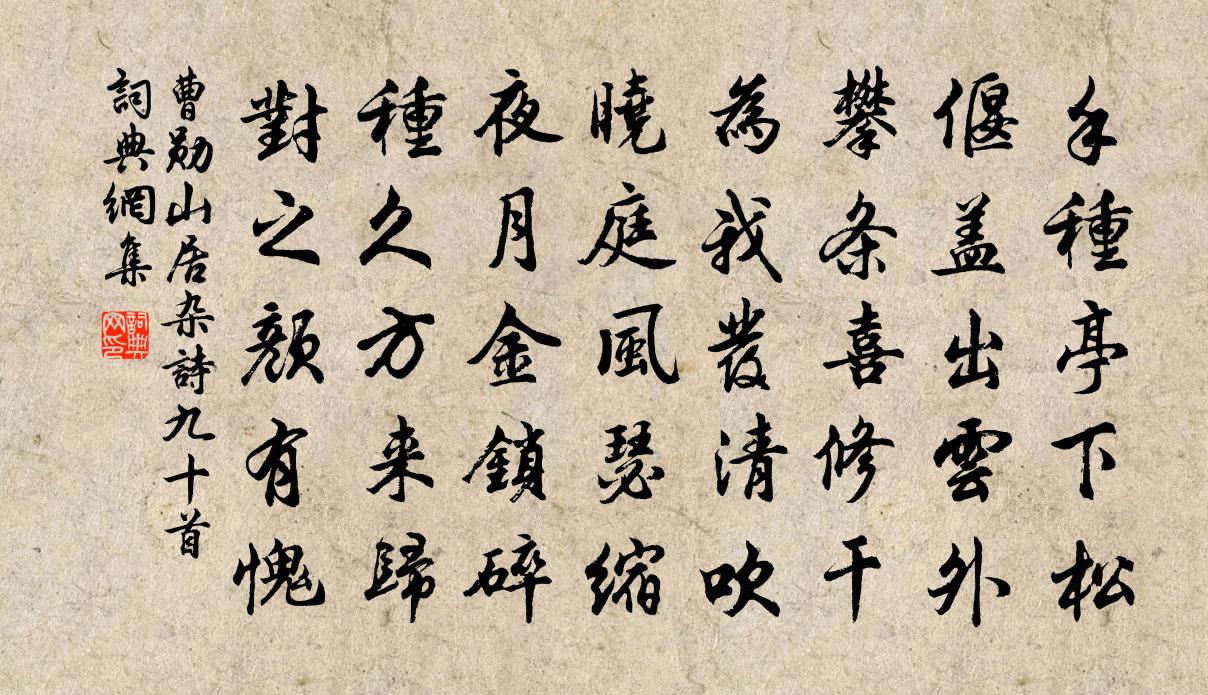 手種亭下松
偃蓋出雲外
攀条喜修干
為我發清吹
曉庭風瑟縮
夜月金鎖碎
種久方来歸
對之顏有愧
曹勛山居杂詩九十首
詞典網集
詞典网印